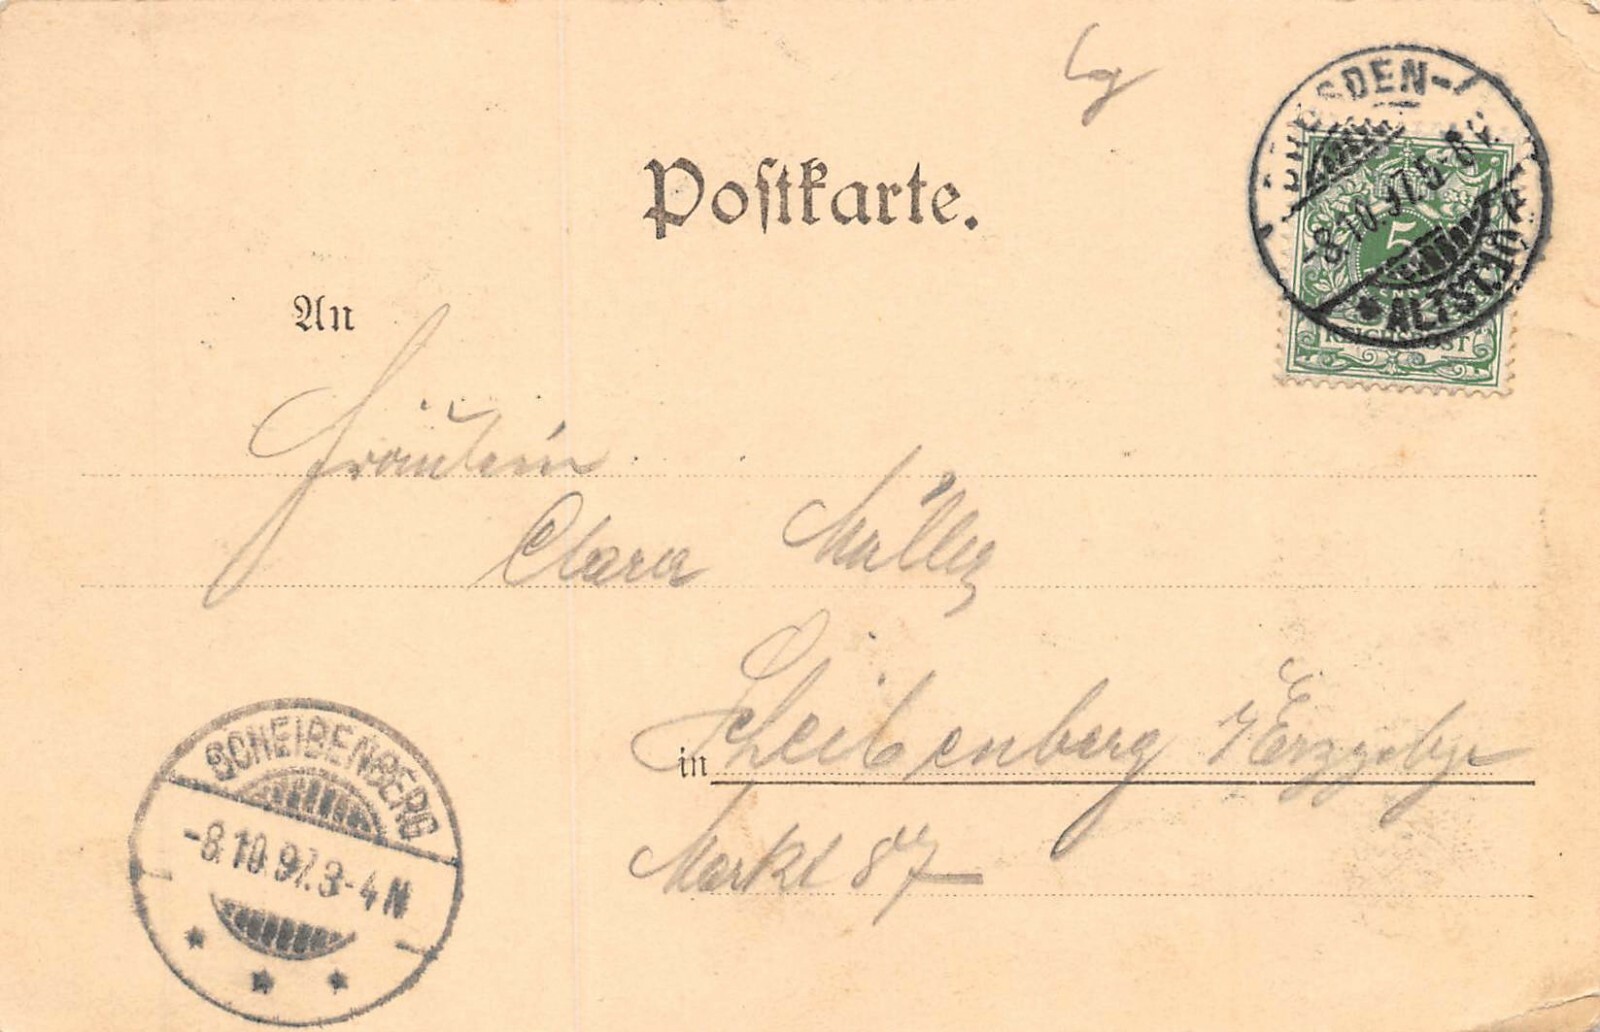 Postkarte.
DRESDEN-
-8.10.97.5-8V.
* ALTSTADT
5
REICHSPOST
An
Fräulein
Clara Müller
in Scheibenberg i/Erzgebge
Markt 87
SCHEIBENBERG
-8.10.97.3-4N